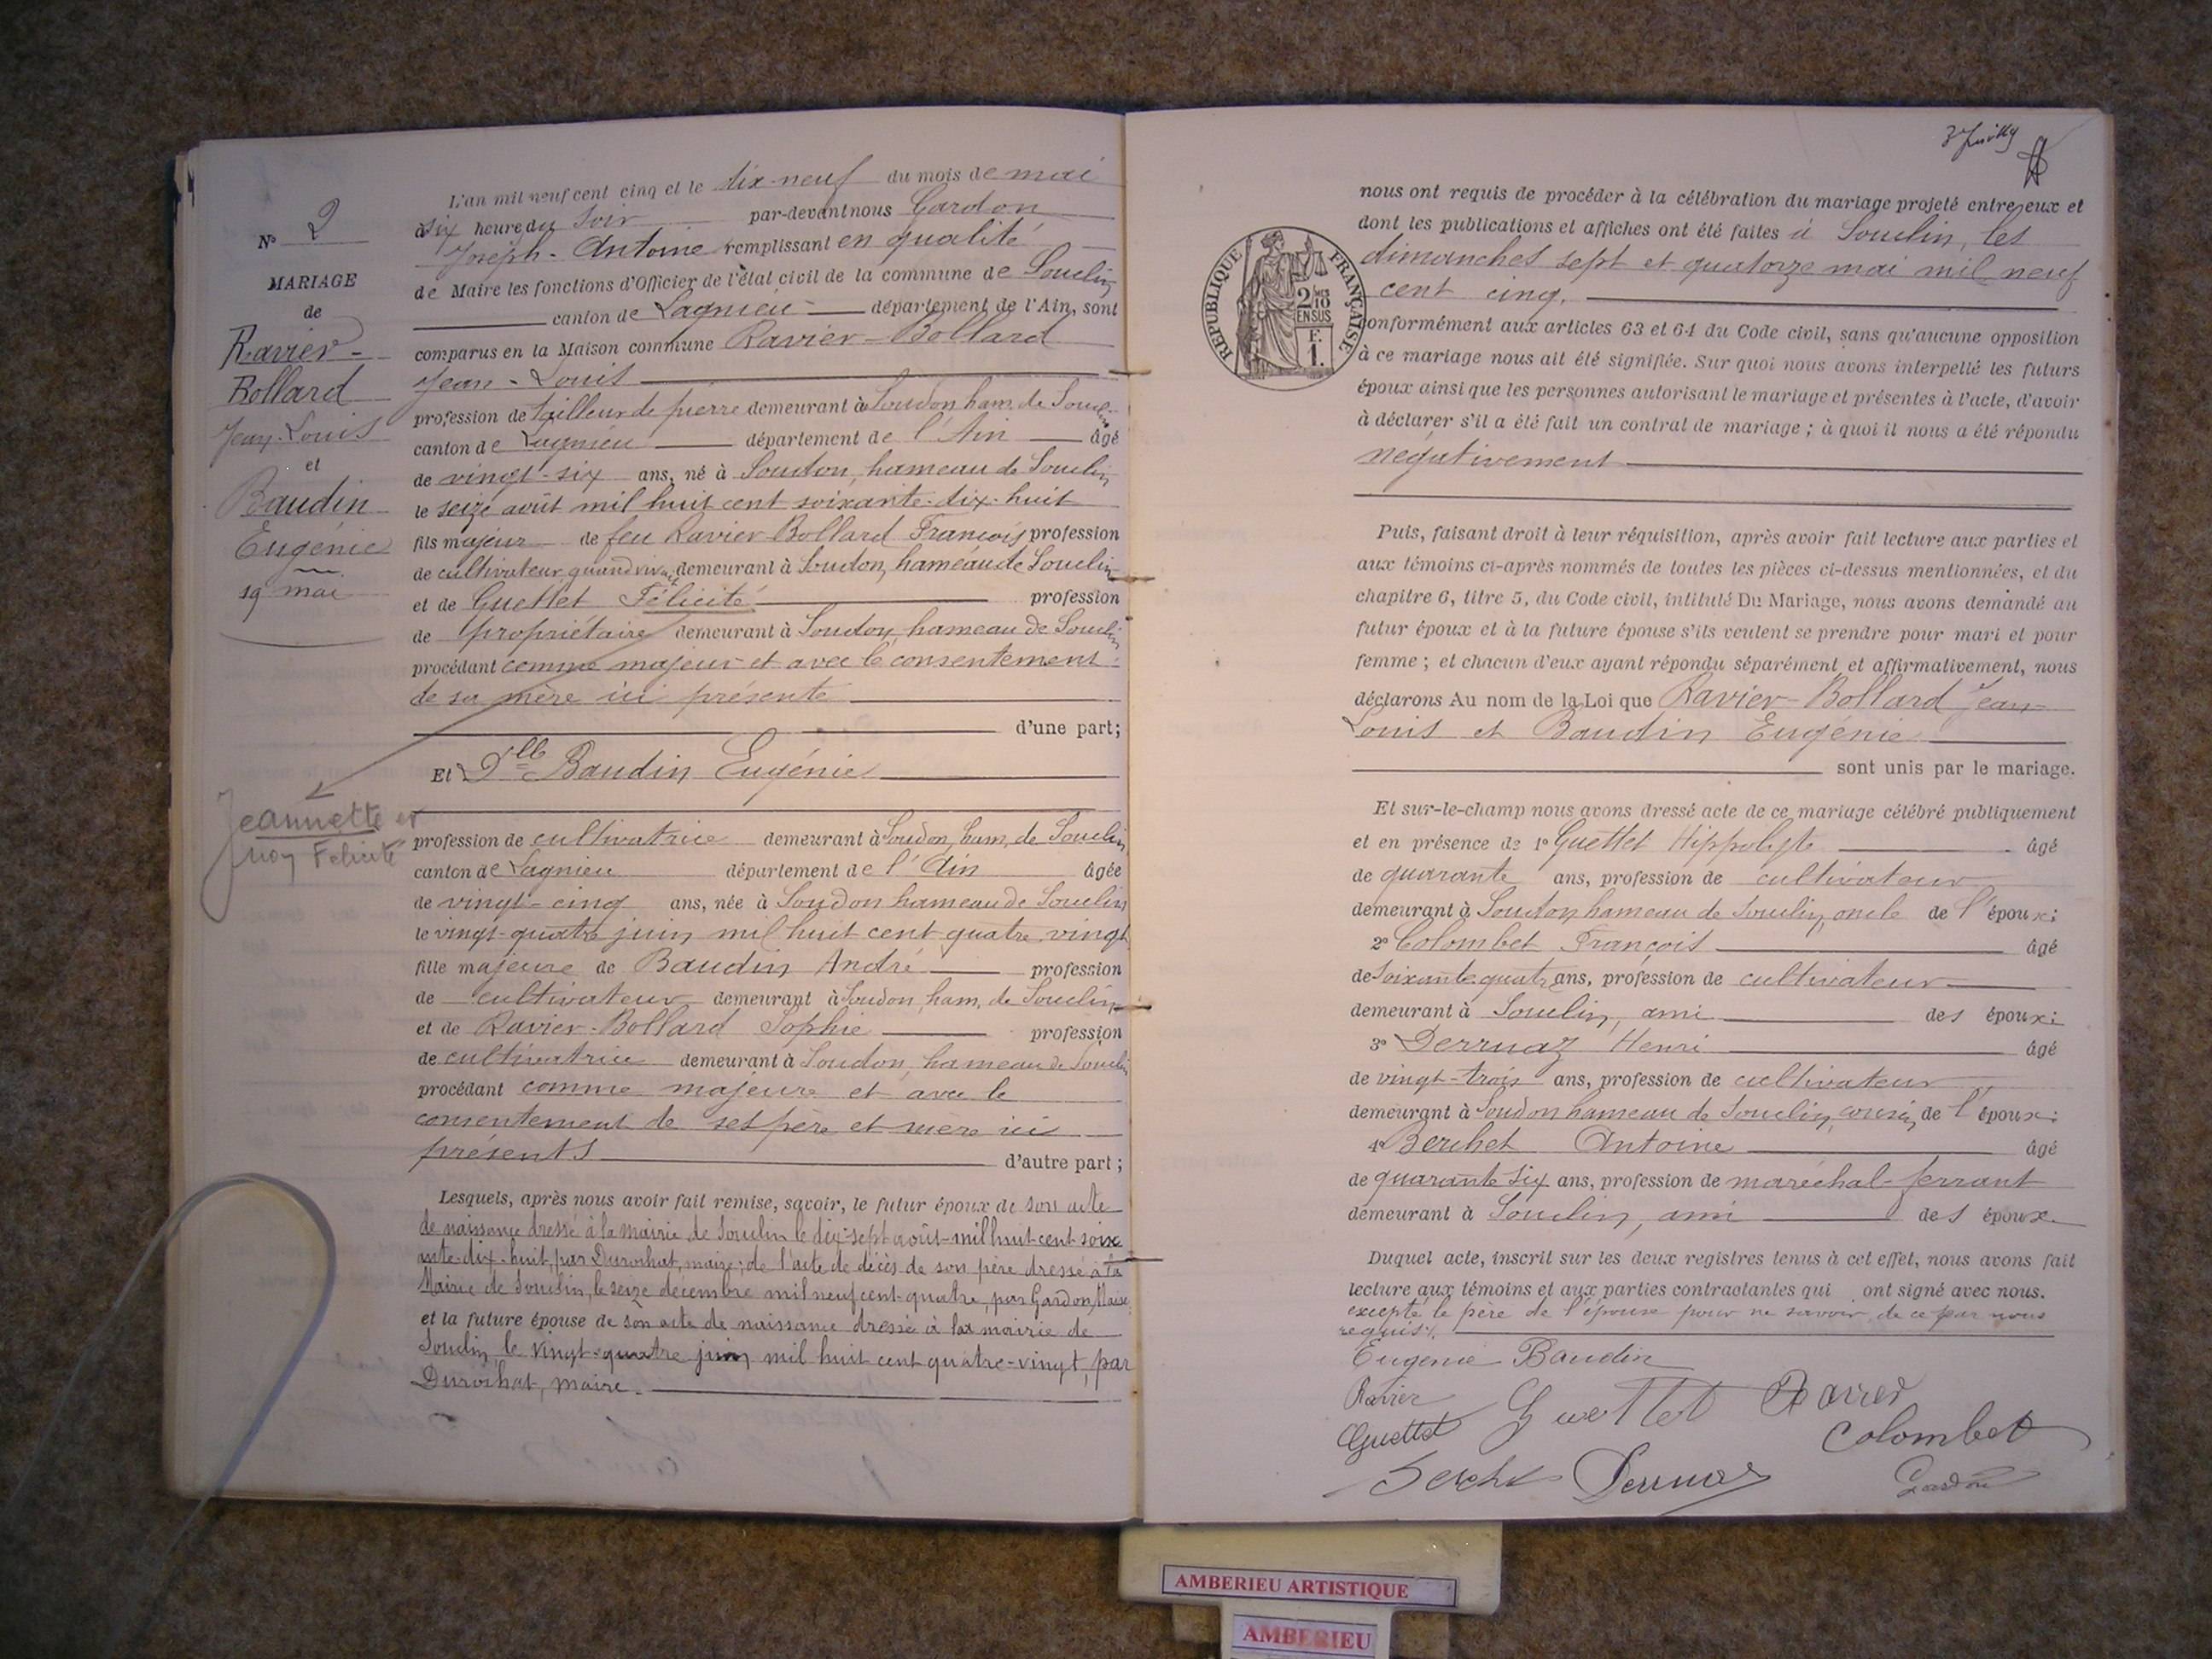 N° 2
MARIAGE
de
Ravier-
Bollard
Jean-Louis
et
Baudin
Eugénie
19 mai
Jeannette et
non Felicité
L'an mil neuf cent cinq et le dix-neuf du mois de mai
à six heure du soir par-devant nous Gardon
Joseph-Antoine remplissant en qualité
de Maire les fonctions d'Officier de l'état civil de la commune de Souclin
canton de Lagnieu département de l'Ain, sont
comparus en la Maison commune Ravier-Bollard
Jean-Louis
profession de tailleur de pierre demeurant à Soudon ham. de Souclin
canton de Lagnieu département de l'Ain âgé
de vingt-six ans, né à Soudon, hameau de Souclin
le seize août mil huit cent soixante-dix-huit
fils majeur de feu Ravier-Bollard François profession
de cultivateur quand vivait demeurant à Soudon, hameau de Souclin
et de Guettet Félicité profession
de propriétaire demeurant à Soudon, hameau de Souclin
procédant comme majeur et avec le consentement
de sa mère ici présente
d'une part;
Et Dlle Baudin Eugénie
profession de cultivatrice demeurant à Soudon, ham. de Souclin
canton de Lagnieu département de l'Ain âgée
de vingt-cinq ans, née à Soudon hameau de Souclin
le vingt-quatre juin mil huit cent quatre-vingt
fille majeure de Baudin André profession
de cultivateur demeurant à Soudon, ham. de Souclin
et de Ravier-Bollard Sophie profession
de cultivatrice demeurant à Soudon, hameau de Souclin
procédant comme majeure et avec le
consentement de ses père et mère ici
présents d'autre part;
Lesquels, après nous avoir fait remise, savoir, le futur époux de son acte
de naissance dressé à la mairie de Souclin le dix-sept août mil huit cent soix
ante-dix-huit, par Durochat, maire; de l'acte de décès de son père dressé à la
Mairie de Souclin, le seize décembre mil neuf cent quatre, par Gardon, Maire
et la future épouse de son acte de naissance dressé à la mairie de
Souclin le vingt-quatre juin mil huit cent quatre-vingt, par
Durochat, maire.
RÉPUBLIQUE FRANÇAISE
2/10 MES
EN SUS
F.
1.
nous ont requis de procéder à la célébration du mariage projeté entre eux et
dont les publications et affiches ont été faites à Souclin, les
dimanches sept et quatorze mai mil neuf
cent cinq.
conformément aux articles 63 et 64 du Code civil, sans qu'aucune opposition
à ce mariage nous ait été signifiée. Sur quoi nous avons interpellé les futurs
époux ainsi que les personnes autorisant le mariage et présentes à l'acte, d'avoir
à déclarer s'il a été fait un contrat de mariage; à quoi il nous a été répondu
négativement
Puis, faisant droit à leur réquisition, après avoir fait lecture aux parties et
aux témoins ci-après nommés de toutes les pièces ci-dessus mentionnées, et du
chapitre 6, titre 5, du Code civil, intitulé Du Mariage, nous avons demandé au
futur époux et à la future épouse s'ils veulent se prendre pour mari et pour
femme; et chacun d'eux ayant répondu séparément et affirmativement, nous
déclarons Au nom de la Loi que Ravier-Bollard Jean-
Louis et Baudin Eugénie
sont unis par le mariage.
Et sur-le-champ nous avons dressé acte de ce mariage célébré publiquement
et en présence de 1° Guettet Hippolyte âgé
de quarante ans, profession de cultivateur
demeurant à Soudon hameau de Souclin, oncle de l'époux;
2° Colombet François âgé
de soixante-quatre ans, profession de cultivateur
demeurant à Souclin, ami des époux;
3° Derruaz Henri âgé
de vingt-trois ans, profession de cultivateur
demeurant à Soudon hameau de Souclin, cousin, de l'époux;
4° Berchet Antoine âgé
de quarante six ans, profession de maréchal-ferrant
demeurant à Souclin, ami des époux.
Duquel acte, inscrit sur les deux registres tenus à cet effet, nous avons fait
lecture aux témoins et aux parties contractantes qui ont signé avec nous.
excepté le père de l'épouse pour ne savoir de ce par nous
requis.
Eugénie Baudin
Ravier Guettet Ravier
Guettet Colombet
Berchet Derruaz Gardon
AMBERIEU ARTISTIQUE
AMBERIEU